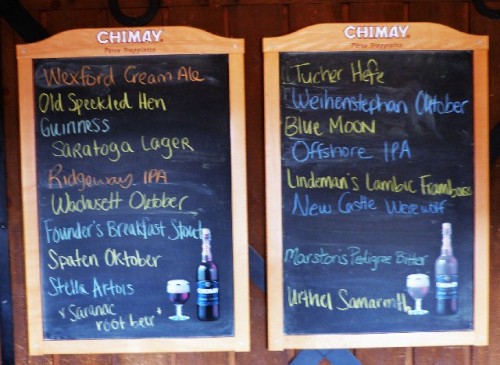 CHIMAY
Pères Trappistes
Wexford Cream Ale
Old Speckled Hen
Guinness
Saratoga Lager
Ridgeway IPA
Wachusett Oktober
Founder's Breakfast Stout
Spaten Oktober
Stella Artois
* Saranac
root beer *
CHIMAY
Pères Trappistes
Tucher Hefe
Weihenstephan Oktober
Blue Moon
Offshore IPA
Lindeman's Lambic Framboise
New Castle Werewolf
Marston's Pedigree Bitter
Urthel Samaranth